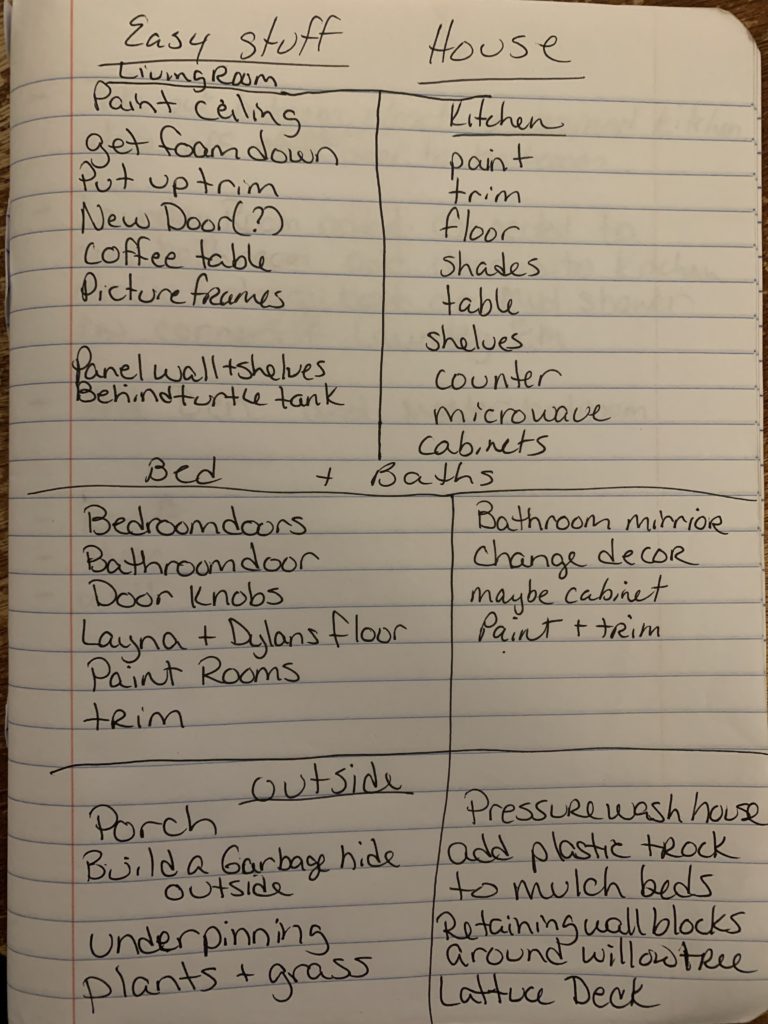 Easy stuff House
Living Room
Paint ceiling
get foam down
Put up trim
New Door(?)
coffee table
Picture frames
Panel wall + shelves
Behind turtle tank
Kitchen
paint
trim
floor
shades
table
shelves
counter
microwave
cabinets
Bed + Baths
Bedroom doors
Bathroom door
Door Knobs
Layna + Dylans floor
Paint Rooms
trim
Bathroom mirrior
change decor
maybe cabinet
Paint + trim
outside
Porch
Build a Garbage hide
outside
underpinning
plants + grass
Pressure wash house
add plastic + rock
to mulch beds
Retaining wall blocks
around willow tree
Lattuce Deck